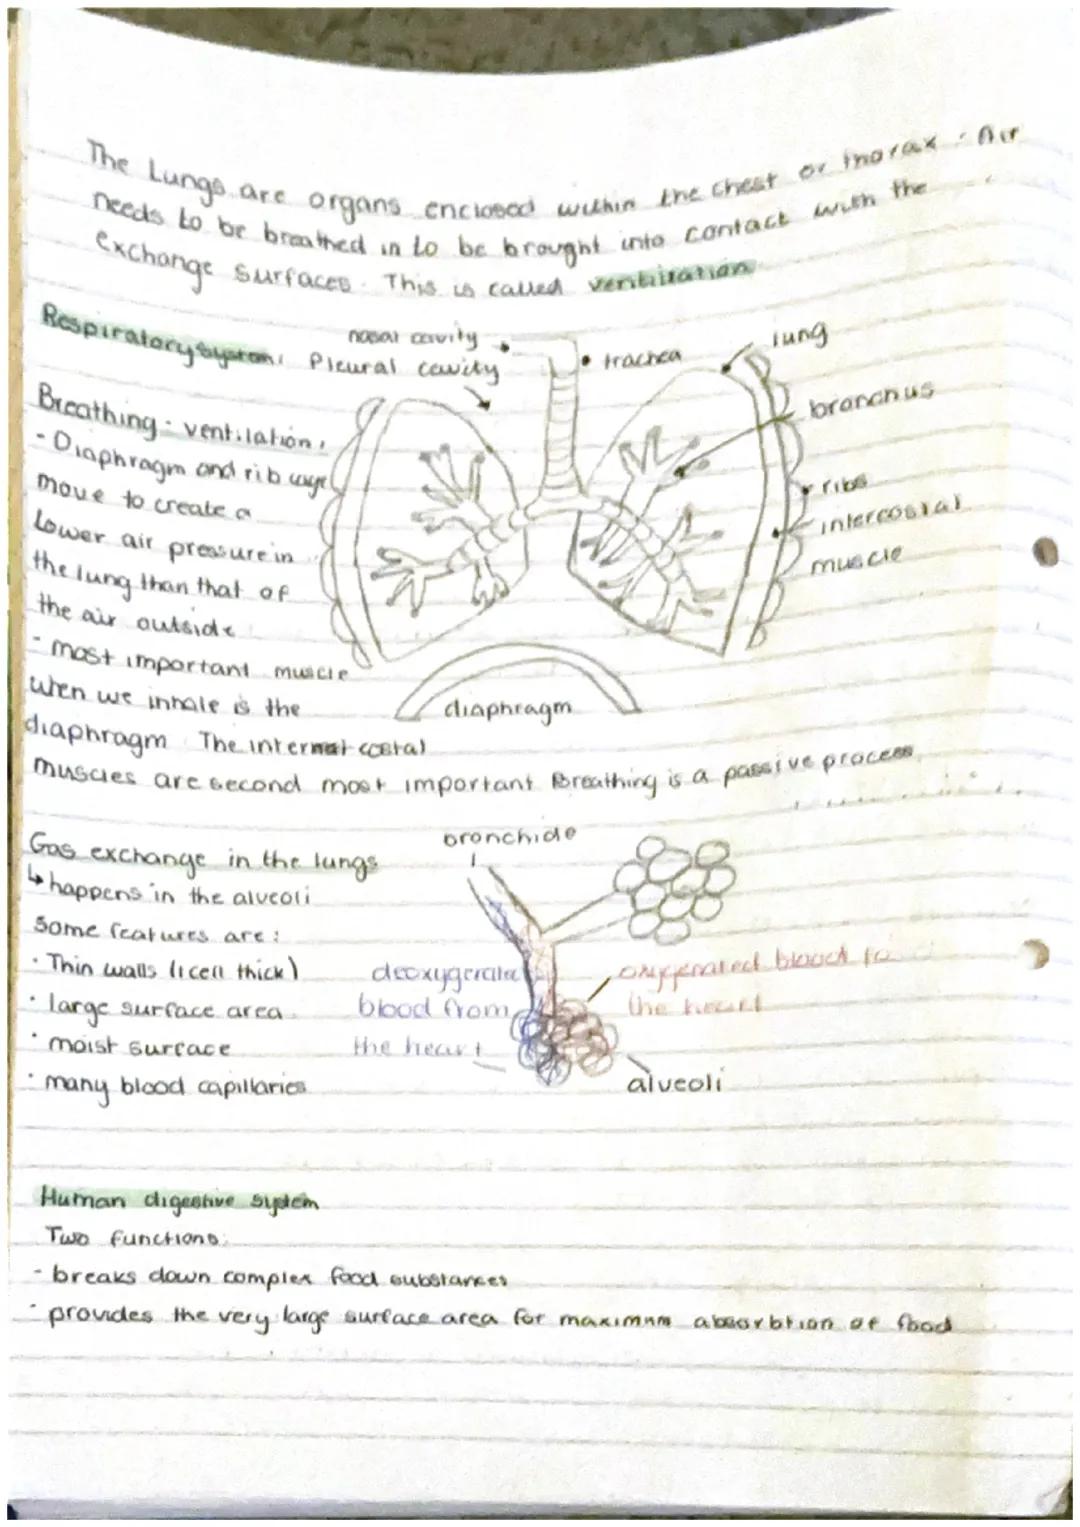 The Lungs are organs enclosed within the chest or thorax. Air
needs to be breathed in to be brought into contact with the
exchange surfaces. This is called ventilation
Respiratory system:
nasal cavity
Pleural cavity
trachea
lung
bronchus
ribs
intercostal
muscle
diaphragm
Breathing - ventilation.
- Diaphragm and rib cage
move to create a
Lower air pressure in
the lung than that of
the air outside
- most important muscle
when we inhale is the
diaphragm. The internat costal
muscles are second most important Breathing is a passive process
Gas exchange in the lungs
↳ happens in the alveoli
Some features are:
· Thin walls (1 cell thick)
· large surface area
· moist surface
· many blood capillaries
bronchide
deoxygerate
blood from
the heart
oxygenated blood to
the heart
alveoli
Human digestive system
Two functions:
- breaks down complex food substances
- provides the very large surface area for maximum absorbtion of food